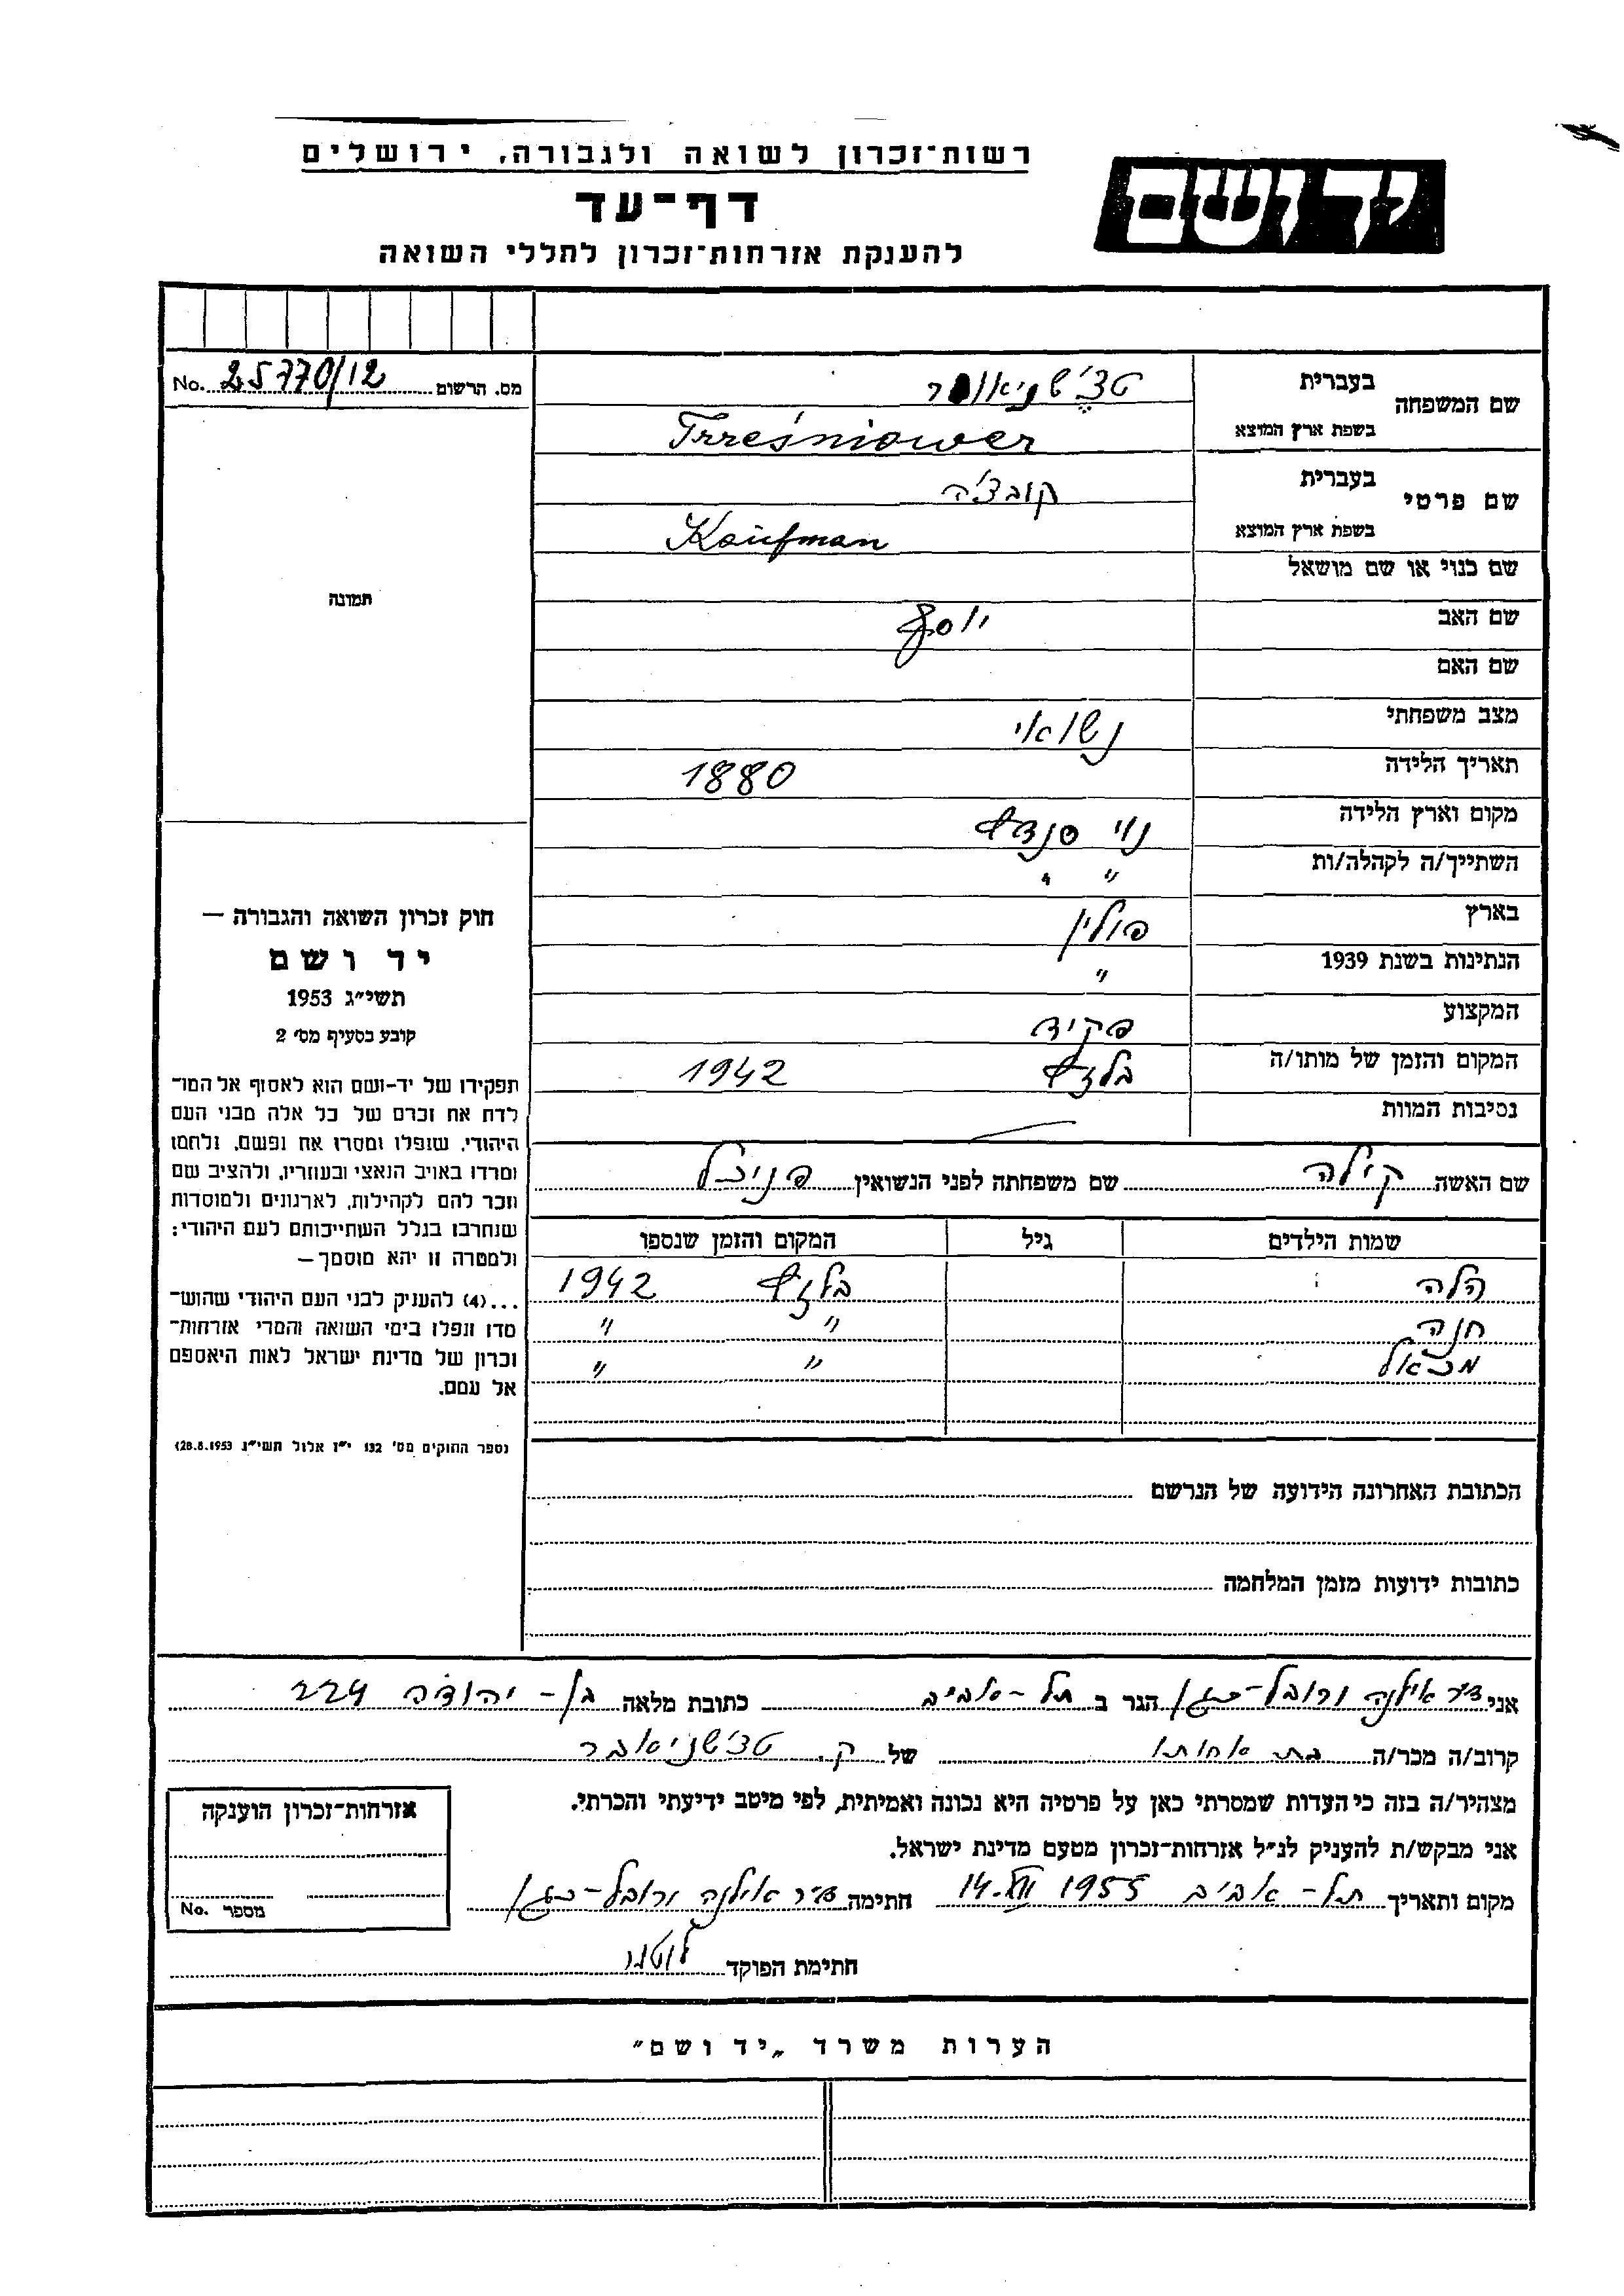 יד ושם
רשות־זכרון לשואה ולגבורה, ירושלים
דף־עד
להענקת אזרחות־זכרון לחללי השואה
מס. הרשום 25770/12 No.
תמונה
שם המשפחה
בעברית
בשפת ארץ המוצא Trześniower
שם פרטי
בעברית
בשפת ארץ המוצא Kaufman
שם כנוי או שם מושאל
שם האב יוסף
שם האם
מצב משפחתי נשואי
תאריך הלידה 1880
מקום וארץ הלידה נוי סנדץ
השתייך/ה לקהלה/ות " "
בארץ פולין
הנתינות בשנת 1939 "
המקצוע פקיד
המקום והזמן של מותו/ה בלזץ 1942
נסיבות המוות
שם האשה קילה שם משפחתה לפני הנשואין
שמות הילדים גיל המקום והזמן שנספו
הלה בלזץ 1942
חנה " "
" "
הכתובת האחרונה הידועה של הנרשם
כתובות ידועות מזמן המלחמה
חוק זכרון השואה והגבורה —
יד ושם
תשי״ג 1953
קובע בסעיף מס׳ 2
תפקידו של יד־ושם הוא לאסוף אל המו־
לדת את זכרם של כל אלה מבני העם
היהודי, שנפלו ומסרו את נפשם, נלחמו
ומרדו באויב הנאצי ובעוזריו, ולהציב שם
וזכר להם לקהילות, לארגונים ולמוסדות
שנחרבו בגלל השתייכותם לעם היהודי;
ולמטרה זו יהא מוסמך —
...(4) להעניק לבני העם היהודי שהוש־
מדו ונפלו בימי השואה והמרי אזרחות־
זכרון של מדינת ישראל לאות היאספם
אל עמם.
(ספר החוקים מס׳ 132 י״ז אלול תשי״ג 28.8.1953)
אני ד״ר אילנה הגר ב תל-אביב כתובת מלאה בן-יהודה 224
קרוב/ה מכר/ה בת אחותו של ק. טצ׳שניאובר
מצהיר/ה בזה כי העדות שמסרתי כאן על פרטיה היא נכונה ואמיתית, לפי מיטב ידיעתי והכרתי.
אני מבקש/ת להעניק לנ״ל אזרחות־זכרון מטעם מדינת ישראל.
מקום ותאריך תל-אביב 14.XII 1955 חתימה ד״ר אילנה
חתימת הפוקד
אזרחות־זכרון הוענקה
מספר No.
הערות משרד „יד ושם״